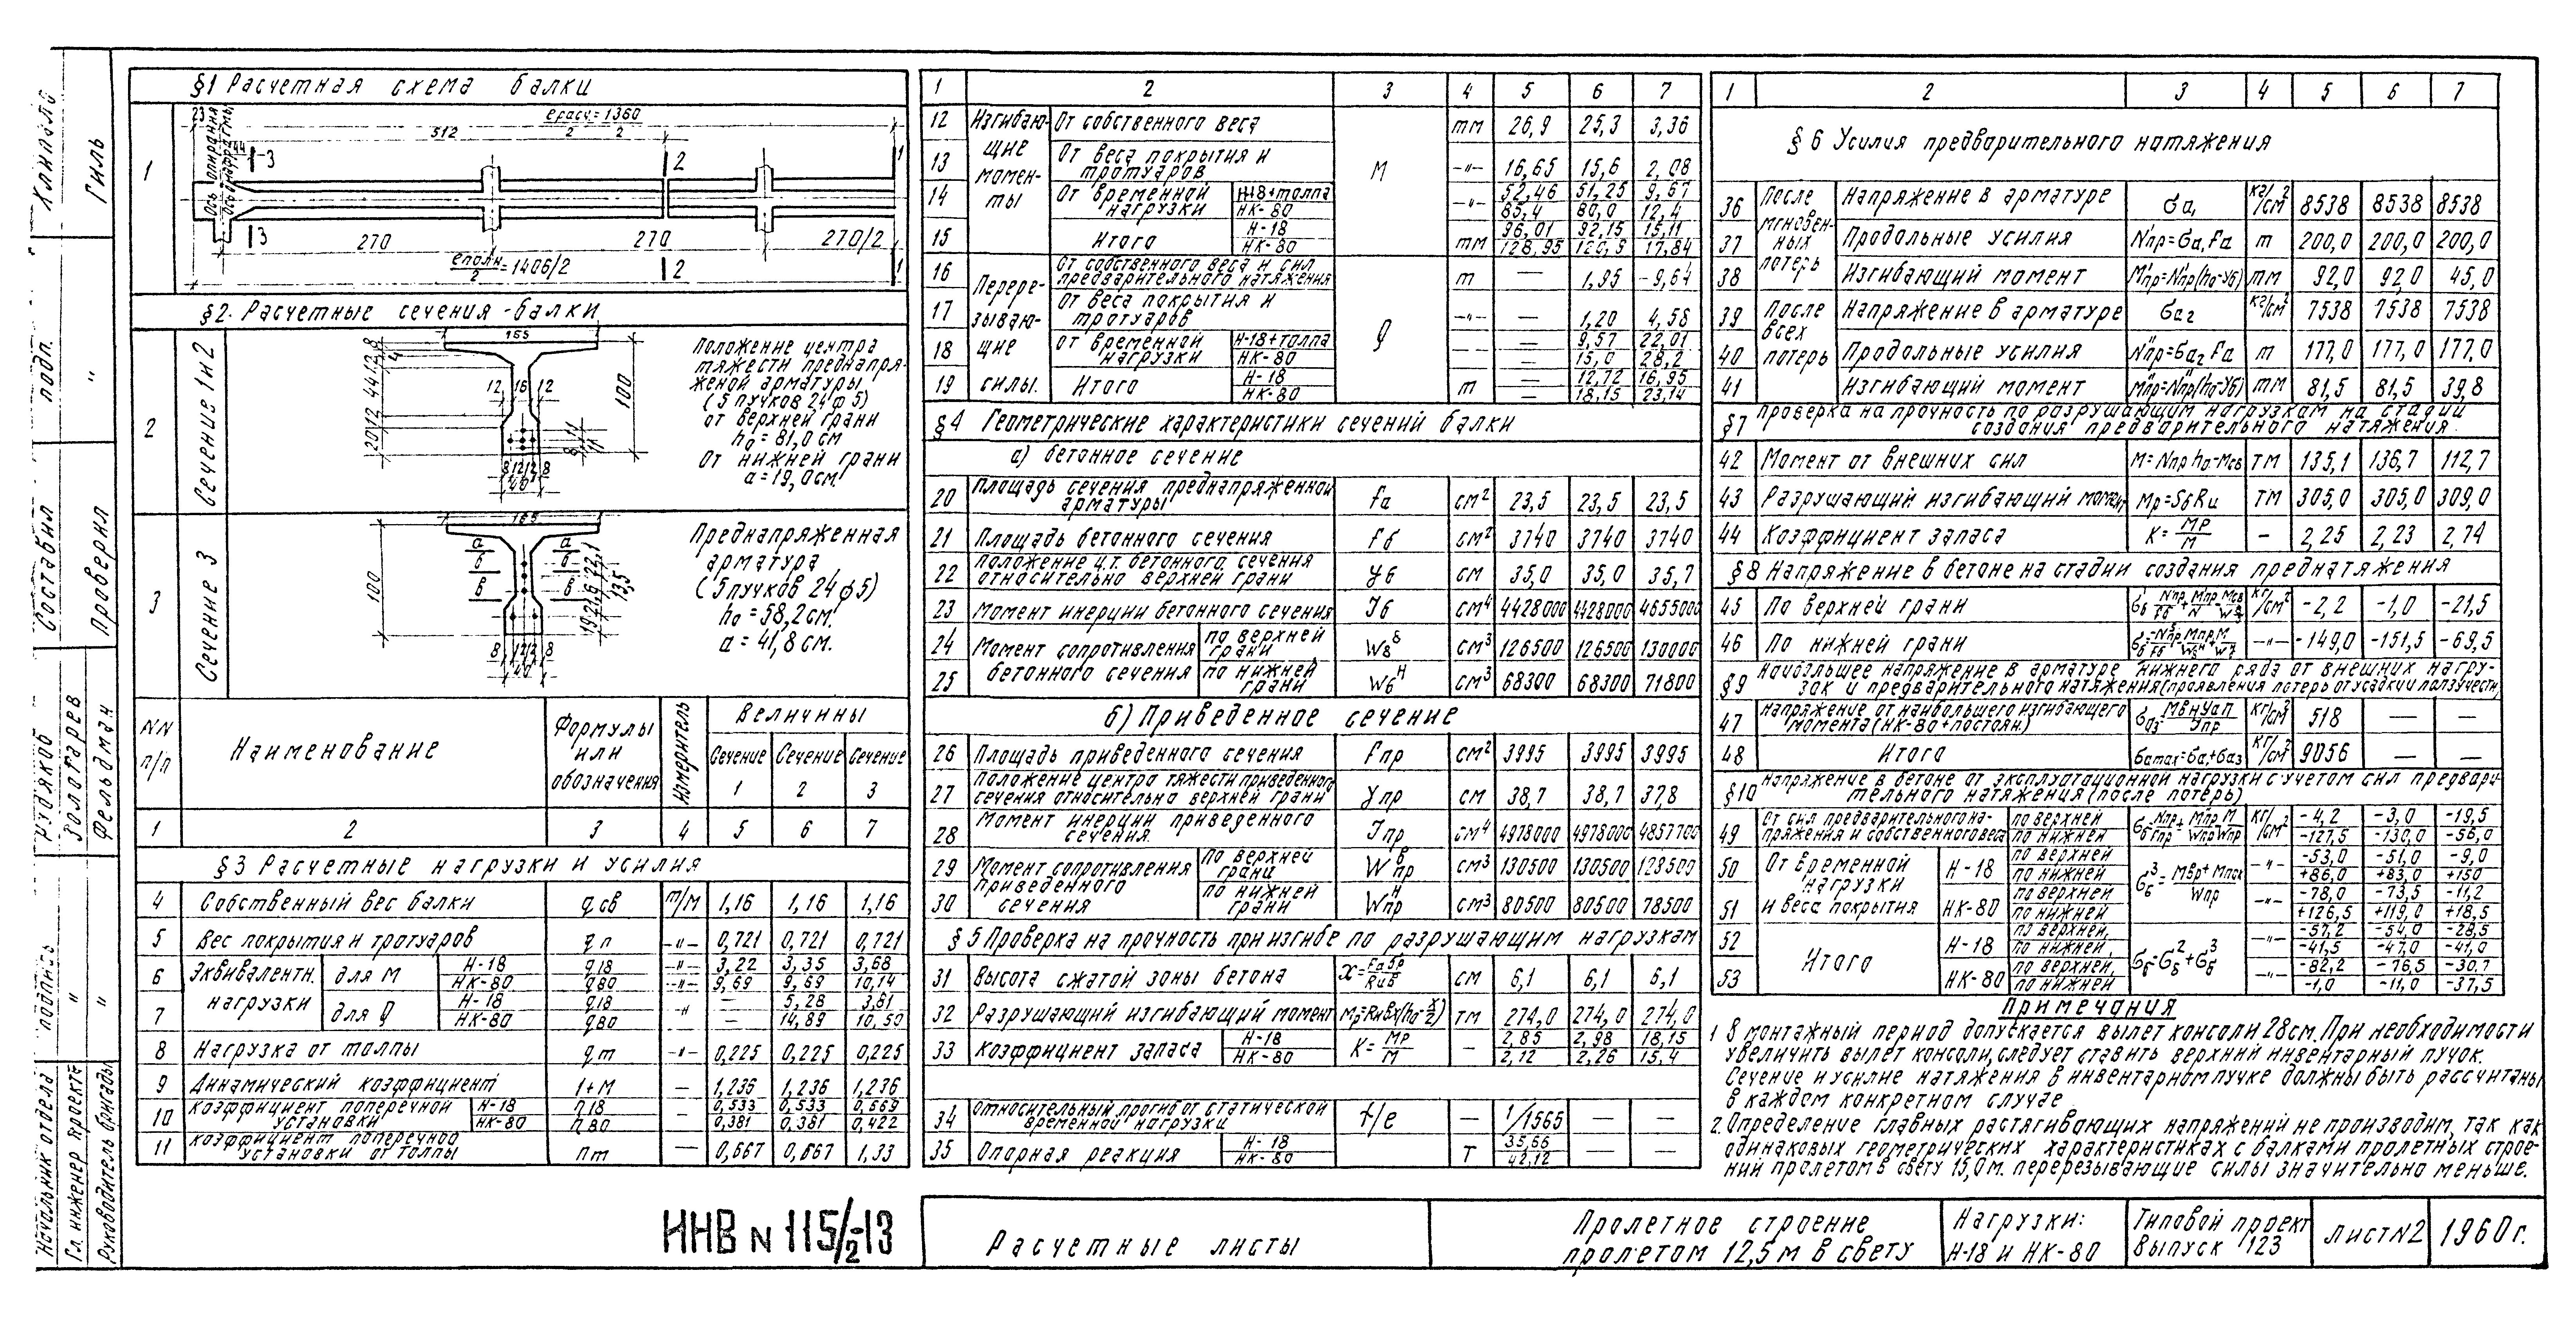 §1 Расчетная схема балки
1
23
Ось опирания
512
eрасч=1360
2 2
3 2 1
3 2 1
270 270 270/2
eполн/2=1406/2
§2. Расчетные сечения балки
2
Сечение 1 и 2
165
100
12 16 12
8 12 12 8
40
Положение центра
тяжести преднапря-
женой арматуры
(5 пучков 24ф5)
от верхней грани
hо=81,0см
От нижней грани
а=19,0см.
3
Сечение 3
165
100
а а
б б
в в
8 12 12 8
40
Преднапряженная
арматура
(5 пучков 24ф5)
hо=58,2см.
а=41,8см.
NN п/п Наименование Формулы или обозначения Измеритель Величины
Сечение 1 Сечение 2 Сечение 3
1 2 3 4 5 6 7
§3 Расчетные нагрузки и усилия
4 Собственный вес балки qсв т/м 1,16 1,16 1,16
5 Вес покрытия и тротуаров qп –"– 0,721 0,721 0,721
6 Эквивалентн. нагрузки для М Н-18 q18 –"– 3,22 3,35 3,68
НК-80 q80 –"– 9,69 9,69 10,14
7 для Q Н-18 q18 –"– — 5,28 3,81
НК-80 q80 — 14,89 10,50
8 Нагрузка от толпы qт –"– 0,225 0,225 0,225
9 Динамический коэффициент 1+М — 1,236 1,236 1,236
10 Коэффициент поперечной установки Н-18 η18 — 0,533 0,533 0,669
НК-80 η80 0,381 0,381 0,422
11 Коэффициент поперечной установки от толпы ηт — 0,667 0,667 1,33
1 2 3 4 5 6 7
12 Изгибающие моменты От собственного веса М тм 26,9 25,3 3,36
13 От веса покрытия и тротуаров –"– 16,65 15,6 2,08
14 От временной нагрузки Н-18+толпа –"– 52,46 51,25 9,67
НК-80 85,4 80,0 12,4
15 Итого Н-18 тм 96,01 92,15 15,11
НК-80 128,95 120,9 17,84
16 Перерезывающие силы. От собственного веса и сил предварительного натяжения Q т — 1,95 -9,64
17 От веса покрытия и тротуаров –"– — 1,20 4,58
18 От временной нагрузки Н-18+толпа –"– — 9,57 22,01
НК-80 — 15,0 28,2
19 Итого Н-18 т — 12,72 16,95
НК-80 — 18,15 23,14
§4 Геометрические характеристики сечений балки
а) бетонное сечение
20 Площадь сечения преднапряженной арматуры Fа см² 23,5 23,5 23,5
21 Площадь бетонного сечения Fб см² 3740 3740 3740
22 Положение ц.т. бетонного сечения относительно верхней грани Yб см 35,0 35,0 35,7
23 Момент инерции бетонного сечения Jб см⁴ 4428000 4428000 4655000
24 Момент сопротивления бетонного сечения по верхней грани Wбв см³ 126500 126500 130000
25 по нижней грани Wбн см³ 68300 68300 71800
б) Приведенное сечение
26 Площадь приведенного сечения Fпр см² 3995 3995 3995
27 Положение центра тяжести приведенного сечения относительно верхней грани Yпр см 38,7 38,7 37,8
28 Момент инерции приведенного сечения. Jпр см⁴ 4978000 4978000 4857700
29 Момент сопротивления приведенного сечения по верхней грани Wпрв см³ 130500 130500 128500
30 по нижней грани Wпрн см³ 80500 80500 78500
§5 Проверка на прочность при изгибе по разрушающим нагрузкам
31 Высота сжатой зоны бетона см 6,1 6,1 6,1
32 Разрушающий изгибающий момент Mр=Rиbx(hо-x/2) тм 274,0 274,0 274,0
33 Коэффициент запаса Н-18 К=Мр/М — 2,85 2,98 18,15
НК-80 2,12 2,26 15,4
34 Относительный прогиб от статической временной нагрузки f/e — 1/1565 — —
35 Опорная реакция Н-18 Т 35,66 — —
НК-80 42,12
1 2 3 4 5 6 7
§6 Усилия предварительного натяжения
36 После мгновенных потерь Напряжение в арматуре σа₁ кг/см² 8538 8538 8538
37 Продольные усилия N'пр=σа₁Fа т 200,0 200,0 200,0
38 Изгибающий момент M'пр=N'пр(hо-Yб) тм 92,0 92,0 45,0
39 После всех потерь Напряжение в арматуре σа₂ кг/см² 7538 7538 7538
40 Продольные усилия N"пр=σа₂Fа т 177,0 177,0 177,0
41 Изгибающий момент M"пр=N"пр(hо-Yб) тм 81,5 81,5 39,8
§7 Проверка на прочность по разрушающим нагрузкам на стадии
создания предварительного натяжения.
42 Момент от внешних сил М=Nпр hо-Мсв ТМ 135,1 136,7 112,7
43 Разрушающий изгибающий момент Мр=SбRи ТМ 305,0 305,0 309,0
44 Коэффициент запаса К=Мр/М — 2,25 2,23 2,74
§8 Напряжение в бетоне на стадии создания преднатяжения
45 По верхней грани кг/см² -2,2 -1,0 -21,5
46 По нижней грани –"– -149,0 -151,5 -69,5
§9 Наибольшее напряжение в арматуре нижнего ряда от внешних нагру-
зок и предварительного натяжения (проявления потерь от усадки и ползучести)
47 Напряжение от наибольшего изгибающего момента (НК-80+постоян.) кг/см² 518 — —
48 Итого σаmax=σа+σа3 кг/см² 9056 — —
§10 Напряжение в бетоне от эксплуатационной нагрузки с учетом сил предвари-
тельного натяжения (после потерь)
49 От сил предварительного напряжения и собственного веса по верхней кг/см² -4,2 -3,0 -19,5
по нижней -127,5 -130,0 -56,0
50 От временной нагрузки и веса покрытия Н-18 по верхней –"– -53,0 -51,0 -9,0
по нижней +86,0 +83,0 +15,0
51 НК-80 по верхней –"– -78,0 -73,5 -11,2
по нижней +126,5 +119,0 +18,5
52 Итого Н-18 по верхней, –"– -57,2 -54,0 -28,5
по нижней, -41,5 -47,0 -41,0
53 НК-80 по верхней, –"– -82,2 -76,5 -30,7
по нижней -1,0 -11,0 -37,5
Примечания
1 В монтажный период допускается вылет консоли 28см. При необходимости
увеличить вылет консоли, следует ставить верхний инвентарный пучок.
Сечение и усилие натяжения в инвентарном пучке должны быть рассчитаны
в каждом конкретном случае
2. Определение главных растягивающих напряжений не производим, так как
одинаковых геометрических характеристиках с балками пролетных строе-
ний пролетом в свету 15,0м. перерезывающие силы значительно меньше.
ИНВ N 115/2-13
Расчетные листы
Пролетное строение
пролетом 12,5м в свету
Нагрузки:
Н-18 и НК-80
Типовой проект
Выпуск 123
Лист N2
1960г.
Начальник отдела подпись Рудяков
Гл. инженер проекта " Золотарев
Руководитель бригады " Фельдман
Составил подп.
Проверил " Гиль